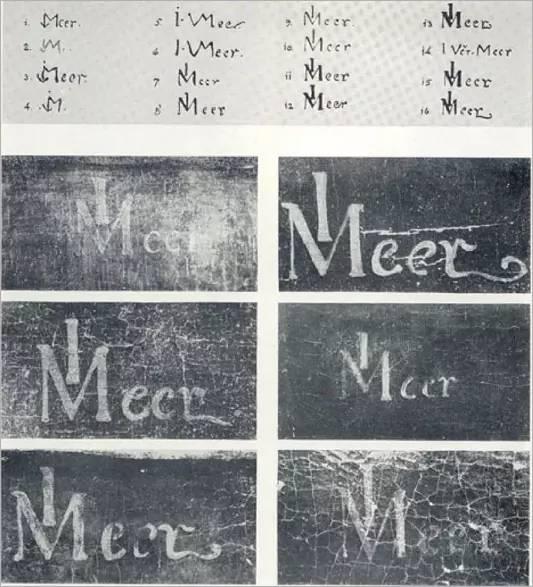 1. IMeer.
2. M..
3. IMeer.
4. IM.
5. I·VMeer
6 I·VMeer.
7 IMeer
8 IMeer
9. IMeer.
10. IMeer
11 IMeer
12 IMeer
13 IMeer
14 I Vër·Meer
15 IMeer
16 IMeer
IMeer
IMeer
IMeer
IMeer
IMeer
IMeer